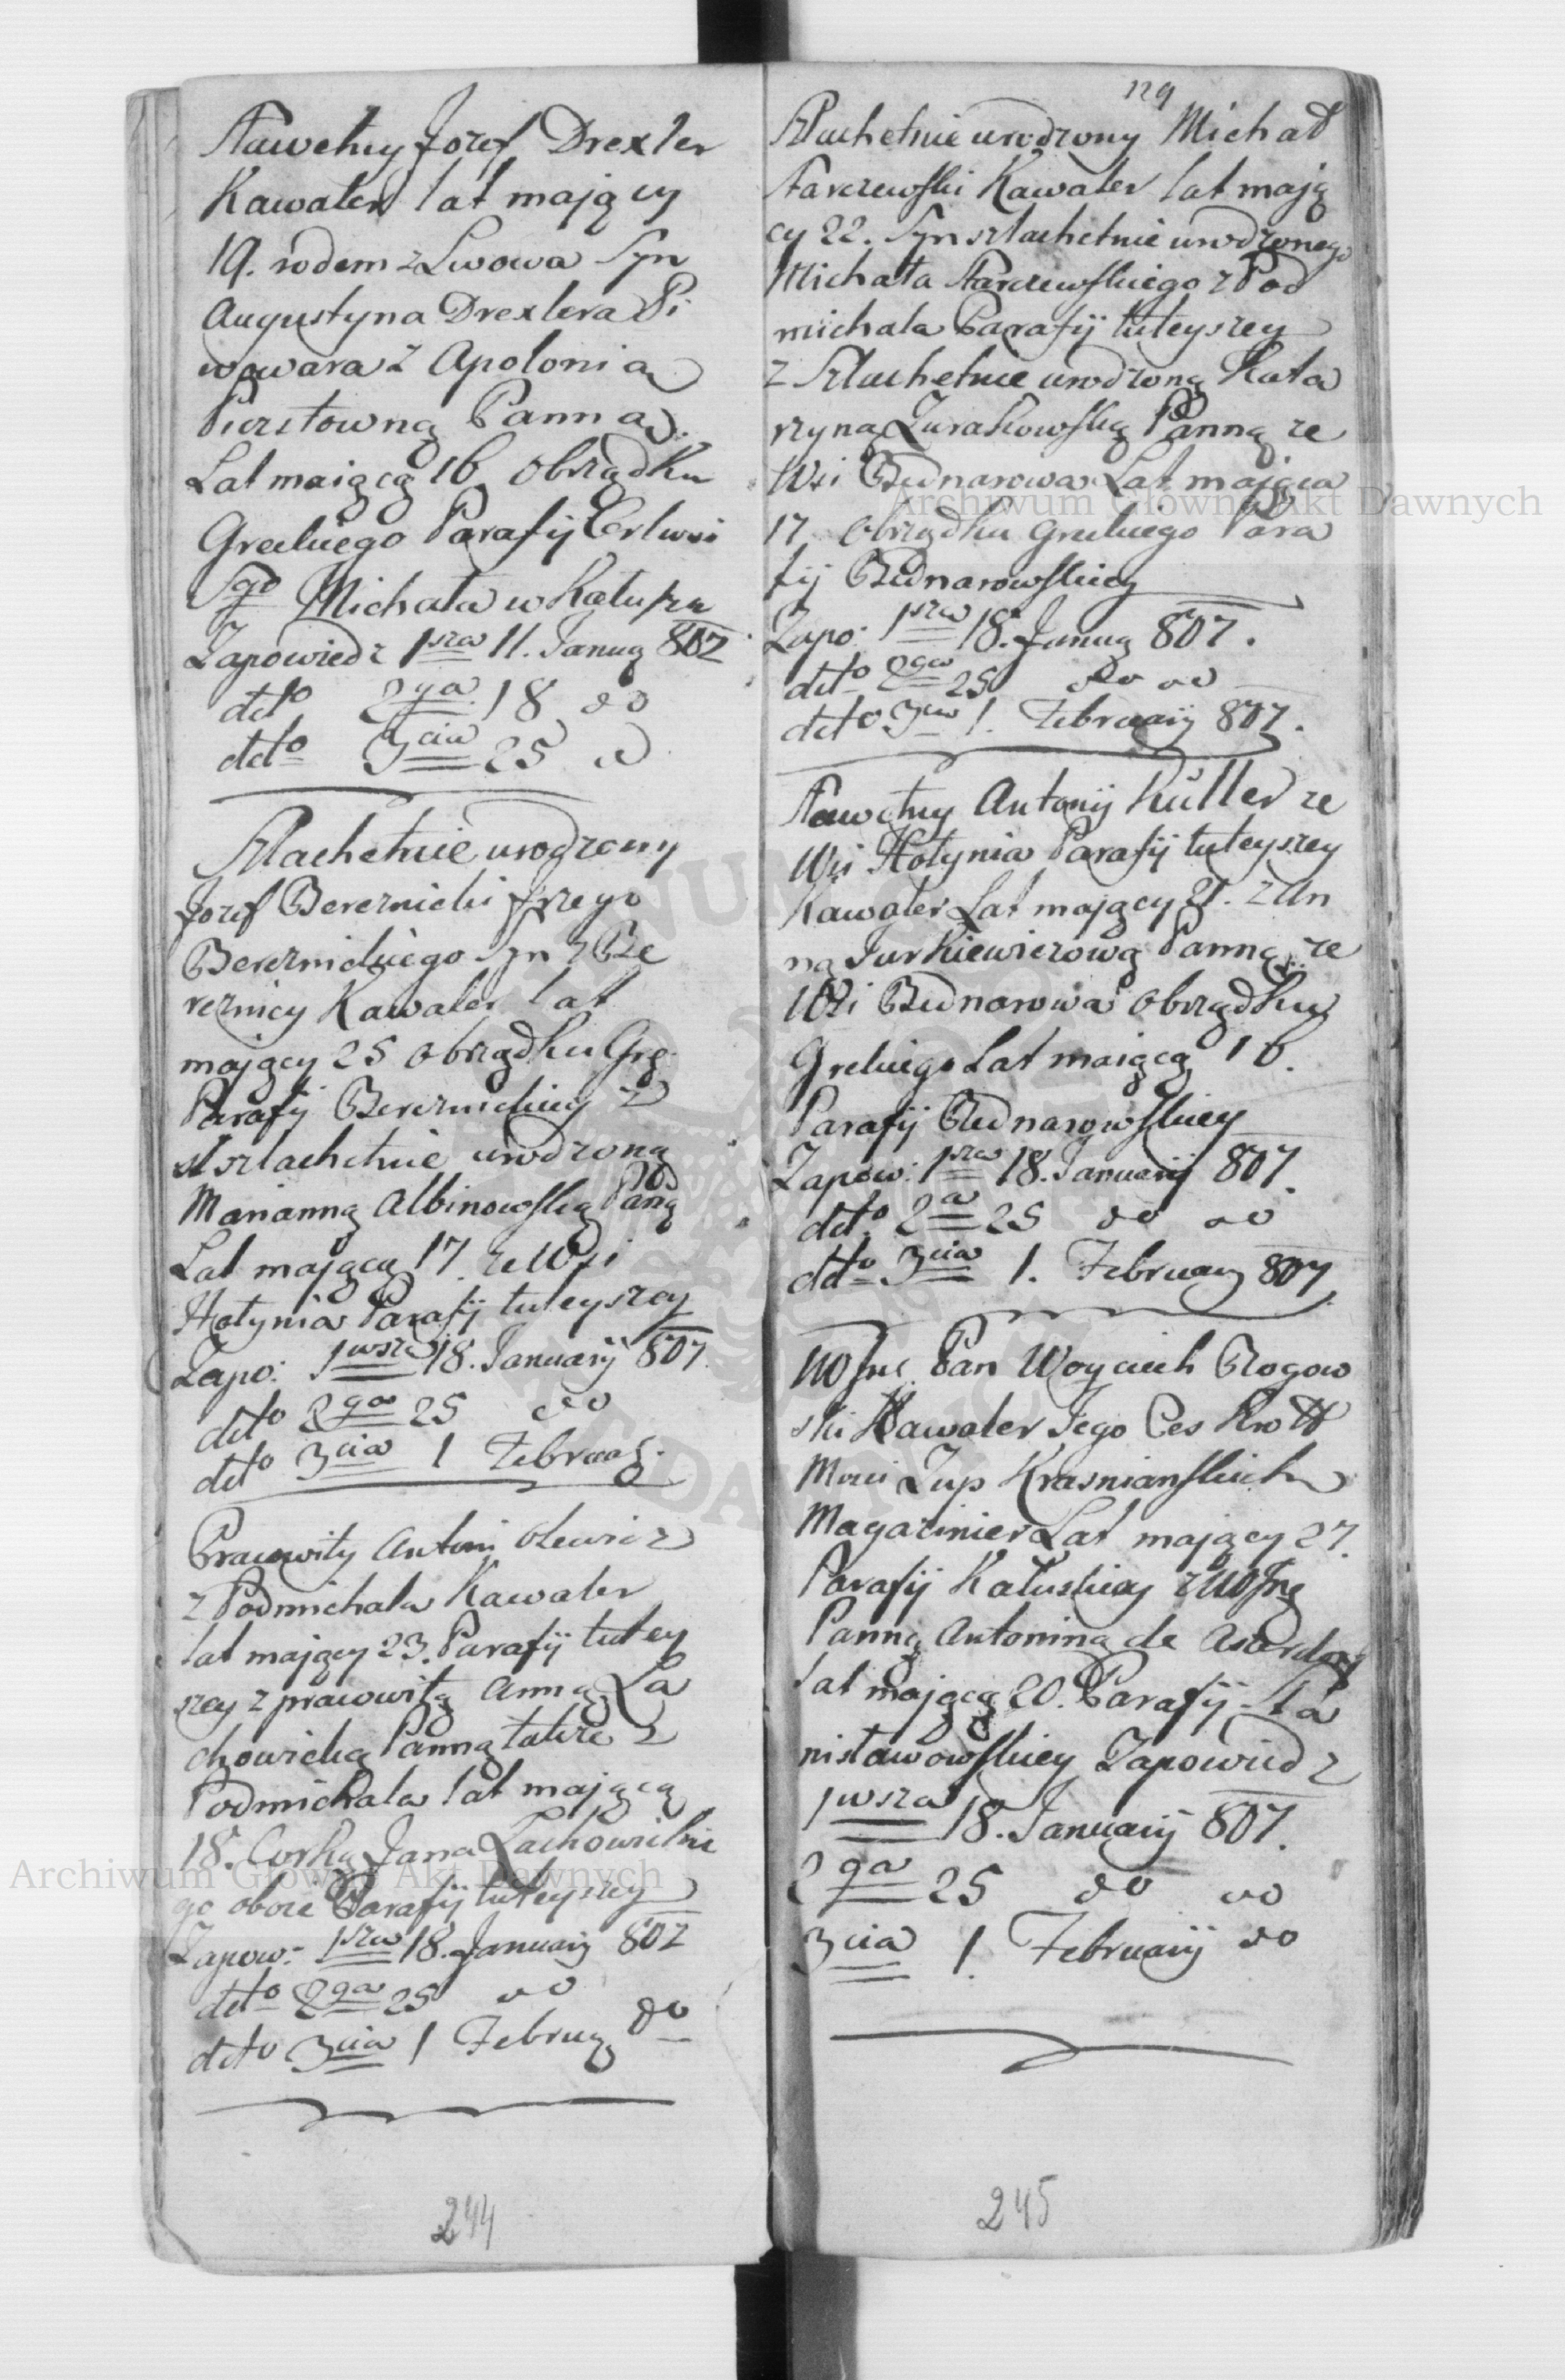 Sławetny Jozef Drexler
Kawaler lat mający
19. rodem z Lwowa Syn
Augustyna Drexlera Pi
wowara z Apolonią
Panną
Lat maiącą 16 obrządku
Greckiego Parafij Cerkwi
Sgo Michała w Kałuszu
Zapowiedz 1sza 11. Januar 807
detto 2ga 18 do
detto 3cia 25 do
Szlachetnie urodzony
Jozef Bereznicki Jrzego
Bereznickiego Syn z Be
reznicy Kawaler lat
mający 25 obrządku Gre
Parafij Bereznickiey z
szlachetnie urodzoną
Marianną Albinowską Paną
Lat mającą 17 ze Wsi
Hołynia Parafij tuteyszey
Zapo: 1wsza 18. Januarij 807.
detto 2ga 25 do
detto 3cia 1 Februar.
Pracowity Antoni
z Podmichala Kawaler
lat mający 23. Parafij tutey
szey z pracowitą Anną La
chowicką Panną także z
Podmichala lat mającą
18. Corką Jana Lachowickie
go oboie Parafij tuteyszey
Zapow: 1sza 18. Januarij 807
detto 2ga 25 do
detto 3cia 1 Februar do
244
129
Szlachetnie urodzony Michał
Starczewski Kawaler lat mają
cy 22. Syn szlachetnie urodzonego
Michała Starczewskiego z Pod
michala Parafij tuteyszey
z Szlachetnie urodzoną Kata
rzyną Zurakowską Panną ze
Wsi Bednarowa Lat mająca
17 obrządku Greckiego Para
fij Bednarowskiey
Zapo: 1sza 18. Januar 807.
detto 2ga 25 do do
detto 3cia 1. Februarij 807.
Sławetny Antonij Küller ze
Wsi Hołynia Parafij tuteyszey
Kawaler Lat mający 21. z An
ną Jurkiewiczową Panną ze
Wsi Bednarowa obrządku
Grekiego Lat maiącą 16.
Parafij Bednarowskiey
Zapow: 1sza 18. Januarij 807.
detto 2a 25 do do
detto 3cia 1. Februarij 807
Pan Woyciech Rogow
ski Kawaler Jego Ces Kro
Mosci Zup Krasnianskich
Magazinier Lat mający 27.
Parafij Kałuskiey z
Panną Antoniną de
lat mającą 20. Parafij Sta
nisławowskiey Zapowiedz
1wsza 18. Januarij 807.
2ga 25 do do
3cia 1 Februarij do
245
Archiwum Główne Akt Dawnych
Archiwum Główne Akt Dawnych